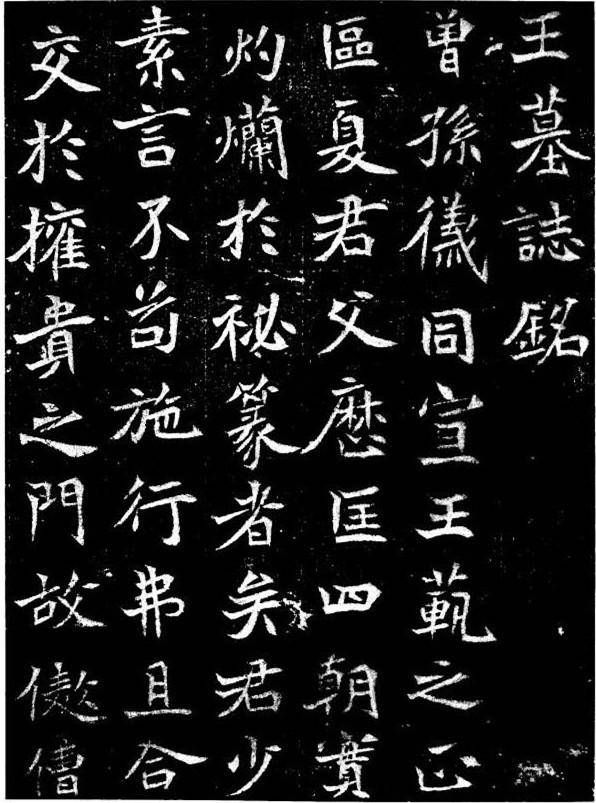 王墓誌銘
曾孫儀同宣王範之正
區夏君父歷匡四朝實
灼爛於祕篆者矣君少
素言不苟施行弗且合
交於擁貴之門故傲